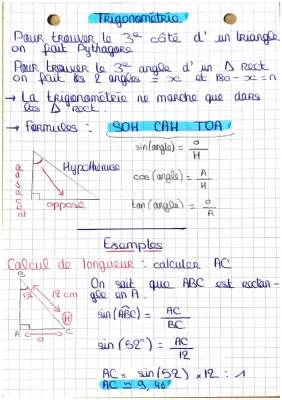 Trigonométrie
Pour trouver le 3e côté d'un triangle
on fait Pythagore
Pour trouver le 3e angle d'un Δ rect
on fait les 2 angles = x et 180 - x = n
→ La trigonométrie ne marche que dans
les Δ rect.
→ Formules : SOH CAH TOA
sin(angle) = O/H
cos(angle) = A/H
tan(angle) = O/A
Hypothénuse
adjacent
opposé
Examples
Calcul de longueur : calculer AC
On sait que ABC est rectan-
gle en A.
sin(ABC) = AC/BC
sin(52°) = AC/12
AC = sin(52) × 12 : 1
AC ≈ 9,46
B
52°
12 cm
H
A
O
C